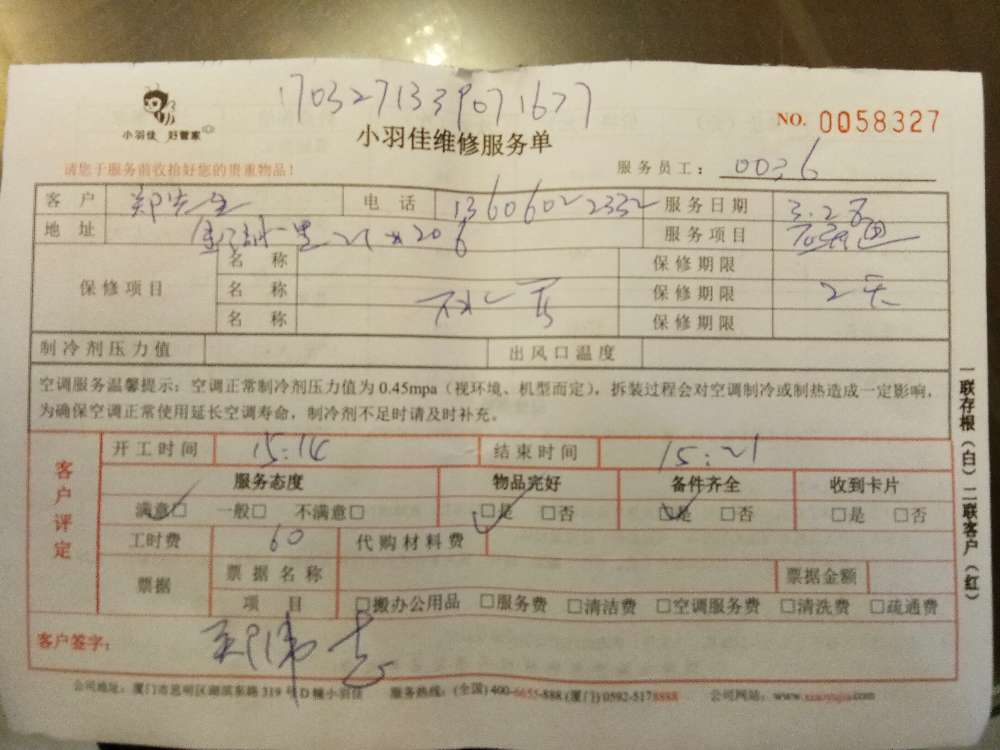 1703271339071677
小羽佳 好管家
小羽佳维修服务单
NO. 0058327
请您于服务前收拾好您的贵重物品！
服务员工： 0036
客户 郑先生 电话 13606022332 服务日期 3.28
地址 206 服务项目
保修项目 名称 保修期限
名称 保修期限 2天
名称 保修期限
制冷剂压力值 出风口温度
空调服务温馨提示：空调正常制冷剂压力值为0.45mpa（视环境、机型而定），拆装过程会对空调制冷或制热造成一定影响，
为确保空调正常使用延长空调寿命，制冷剂不足时请及时补充。
客户评定
开工时间 15:14 结束时间 15:21
服务态度 物品完好 备件齐全 收到卡片
满意□ 一般□ 不满意□ □是 □否 □是 □否 □是 □否
工时费 60 代购材料费
票据 票据名称 票据金额
项目 □搬办公用品 □服务费 □清洁费 □空调服务费 □清洗费 □疏通费
客户签字： 郑伟志
公司地址：厦门市思明区湖滨东路319号D幢小羽佳 服务热线：(全国)400-6655-888 (厦门)0592-5178888 公司网站：www.xiaoyujia.com
一联存根（白）二联客户（红）